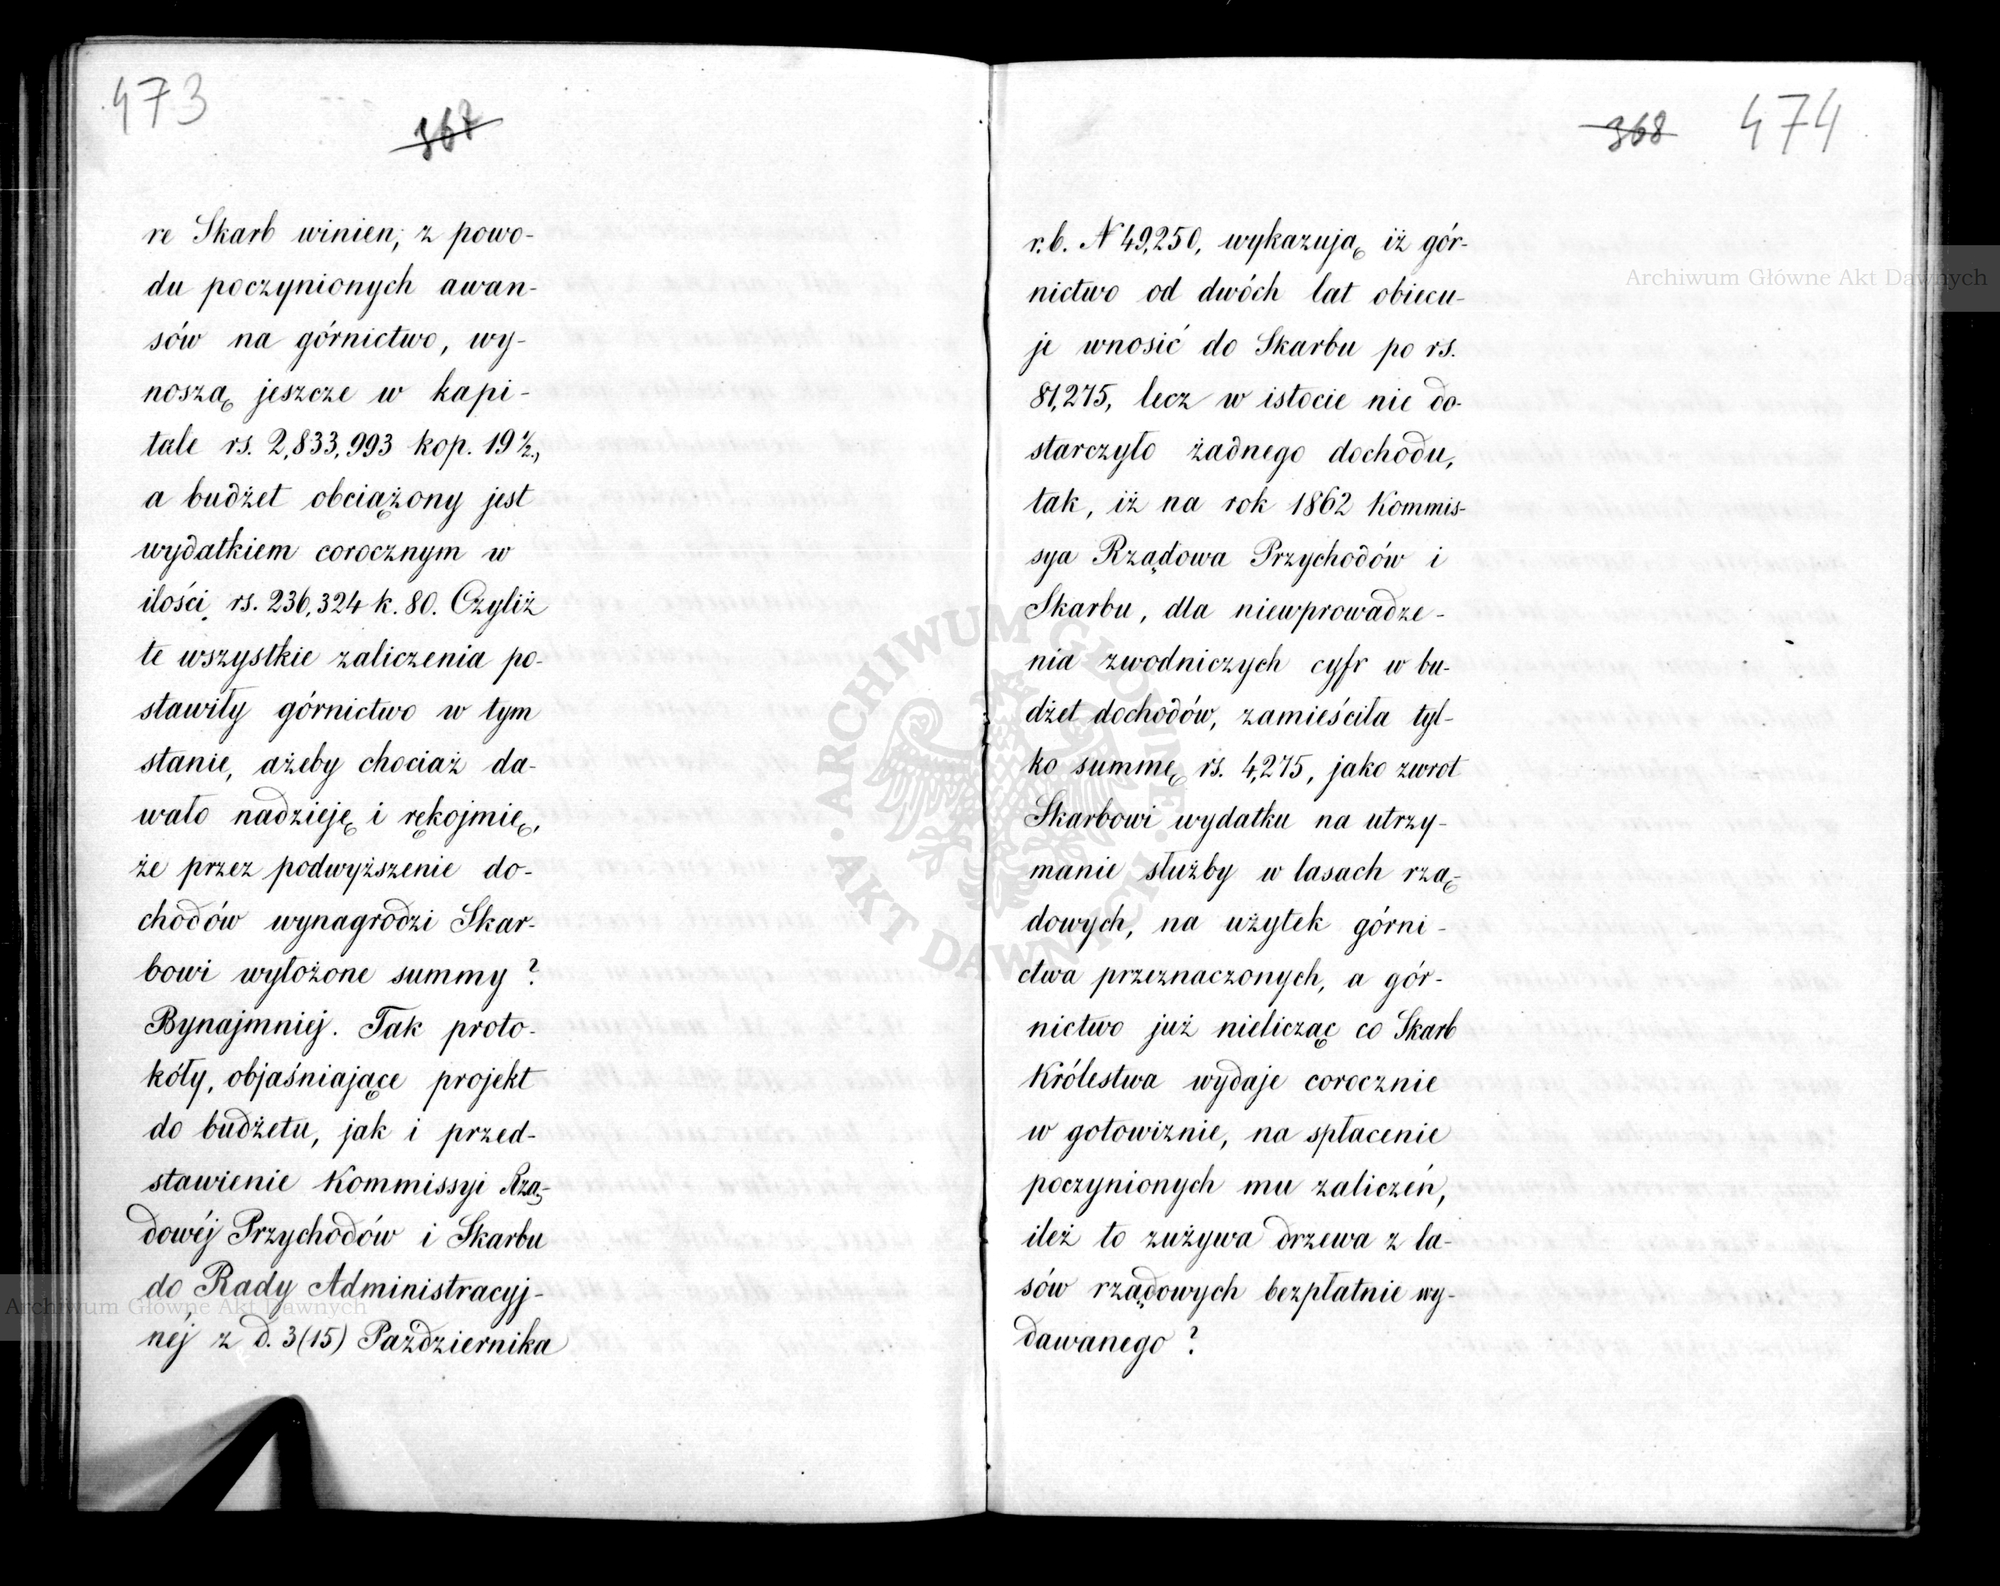 473
367
re Skarb winien, z powo-
du poczynionych awan-
sów na górnictwo, wy-
noszą jeszcze w kapi-
tale rs. 2,833,993 kop. 19 ½,
a budżet obciążony jest
wydatkiem corocznym w
ilości rs. 236,324 k. 80. Czyliż
te wszystkie zaliczenia po-
stawiły górnictwo w tym
stanie, ażeby chociaż da-
wało nadzieję i rękojmię,
że przez podwyższenie do-
chodów wynagrodzi Skar-
bowi wyłożone summy?
Bynajmniej. Tak proto-
kóły, objaśniające projekt
do budżetu, jak i przed-
stawienie Kommissyi Rzą-
dowéj Przychodów i Skarbu
do Rady Administracyj-
néj z d. 3(15) Października
368 474
r.b. N 49,250, wykazują iż gór-
nictwo od dwóch lat obiecu-
je wnosić do Skarbu po rs.
81,275, lecz w istocie nie do-
starczyło żadnego dochodu,
tak, iż na rok 1862 Kommis-
sya Rządowa Przychodów i
Skarbu, dla niewprowadze-
nia zwodniczych cyfr w bu-
dżet dochodów, zamieściła tyl-
ko summę rs. 4,275, jako zwrot
Skarbowi wydatku na utrzy-
manie służby w lasach rzą-
dowych, na użytek górni-
ctwa przeznaczonych, a gór-
nictwo już nielicząc co Skarb
Królestwa wydaje corocznie
w gotowiznie, na spłacenie
poczynionych mu zaliczeń,
ileż to zużywa drzewa z la-
sów rządowych bezpłatnie wy-
dawanego?
Archiwum Główne Akt Dawnych
Archiwum Główne Akt Dawnych
ARCHIWUM GŁÓWNE AKT DAWNYCH